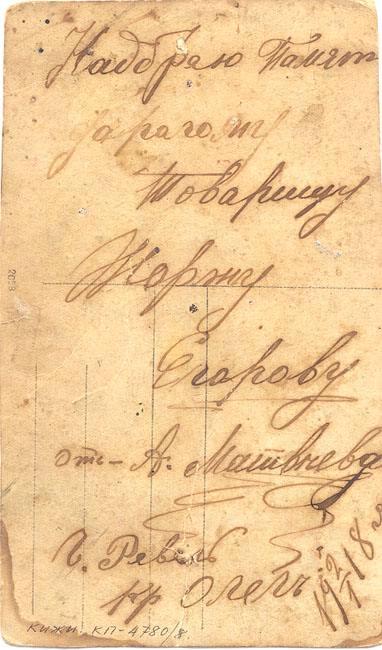 На добраю Памят
дарагому
Товарищу
Коржу
Егорову
отъ – А. Матвѣева
Г. Ревель
кр Олегъ
19 2/I 18 г
2013
КИЖИ КП-4780/8